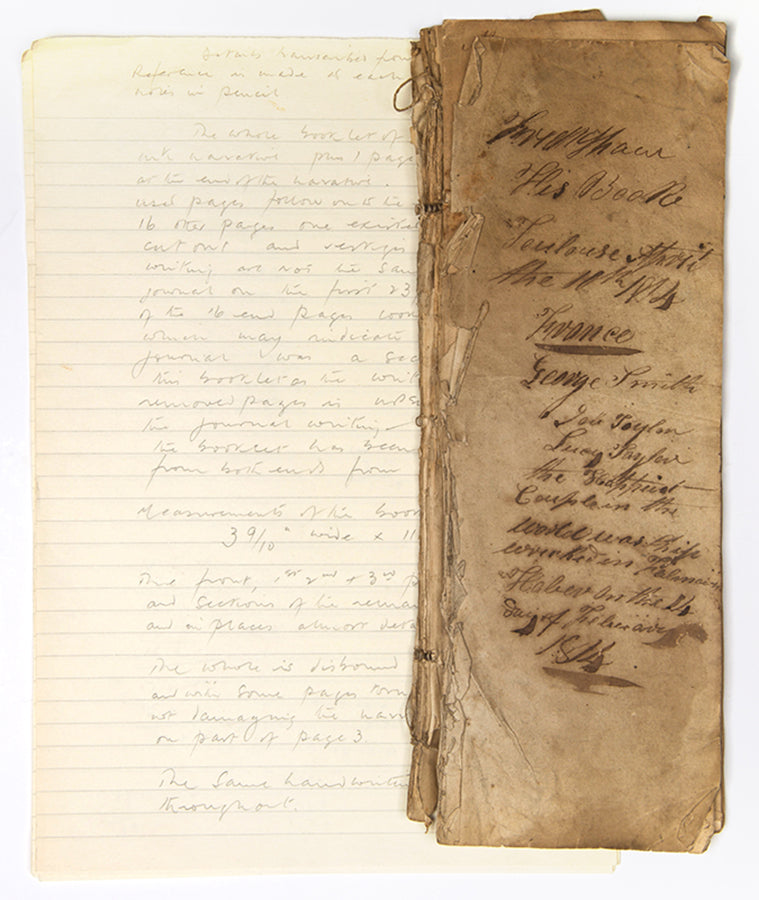 Details transcribed from
Reference is made at each
notes in pencil
The whole booklet of
narrative plus 1 page
at the end of the narrative.
used pages follow on to the
16 other pages one existed
cut out and vestiges
writing are not the same
journal on the first 23
of the 16 end pages
which may indicate
journal was a sec
this booklet as the writ
removed pages is
the journal writing
the booklet has been
from both ends from
Measurements of the book
3 9/10" wide x 11
The front, 1st 2nd + 3rd p
and sections of the remai
and in places almost deta
The whole is disbound
and with some pages torn
not damaging the narr
on part of page 3.
The same handwriting
throughout.
His Booke
Toulouse April
the 11th 1814
France
George Smith
Joe Taylor
Lucy Taylor
the Happiest
Couple in the
world was ship
wrecked in
Haber on the 24
day of Febuary
1814